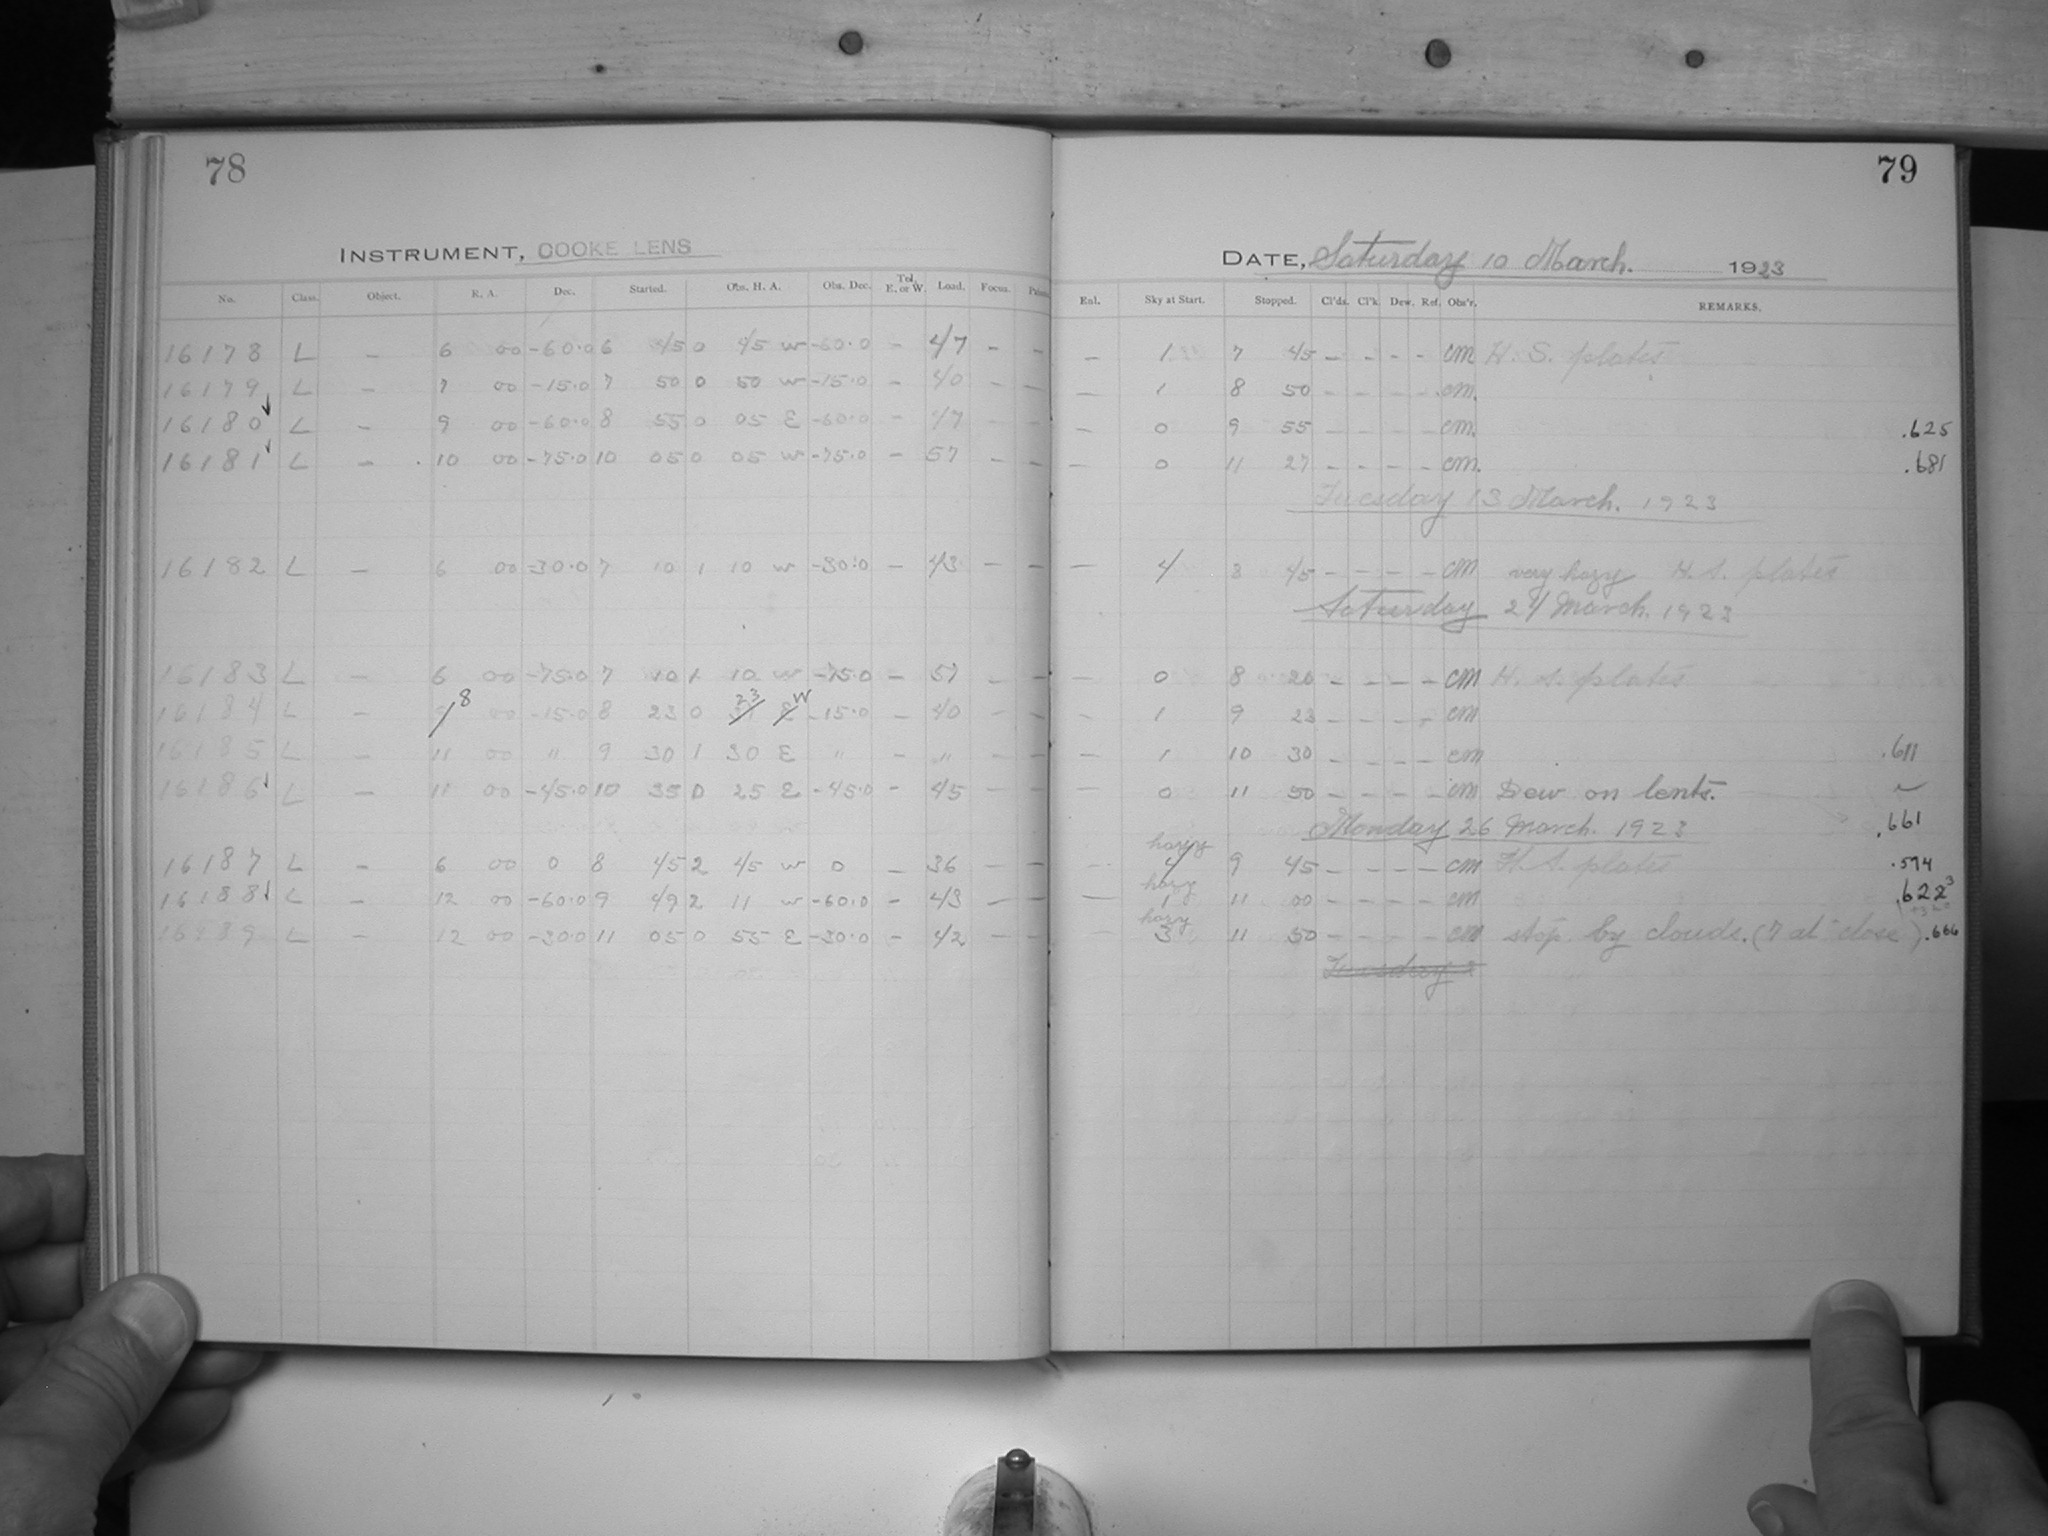 78
INSTRUMENT, COOKE LENS
No. Class. Object. R. A. Dec. Started. Obs. H. A. Obs. Dec. Tel. E. or W. Load. Focus.
16178 L – 6 00 -60.0 6 45 0 45 W -60.0 – 47 – –
16179 L – 7 00 -15.0 7 50 0 50 W -15.0 – 40 – –
16180 L – 9 00 -60.0 8 55 0 05 E -60.0 – 47 – –
16181 L – 10 00 -75.0 10 05 0 05 W -75.0 – 57 – –
16182 L – 6 00 -30.0 7 10 1 10 W -30.0 – 43 – –
16183 L – 6 00 -75.0 7 10 1 10 W -75.0 – 57 – –
16184 L – 8 00 -15.0 8 23 0 23 W -15.0 – 40 – –
16185 L – 11 00 " 9 30 1 30 E " – " – –
16186 L – 11 00 -45.0 10 35 0 25 E -45.0 – 45 – –
16187 L – 6 00 0 8 45 2 45 W 0 – 36 – –
16188 L – 12 00 -60.0 9 49 2 11 W -60.0 – 43 – –
16189 L – 12 00 -30.0 11 05 0 55 E -30.0 – 42 – –
79
DATE, Saturday 10 March. 1923
Enl. Sky at Start. Stopped. Cl'ds. Cl'k. Dew. Ref. Obs'r. REMARKS.
– 1 7 45 – – – – CM H. S. plates
– 1 8 50 – – – – CM.
– 0 9 55 – – – – CM. .625
– 0 11 27 – – – – CM. .681
Tuesday 13 March. 1923
– 4 8 45 – – – – CM very hazy H. S. plates
Saturday 24 March. 1923
– 0 8 20 – – – – CM H. S. plates
– 1 9 23 – – – – CM
– 1 10 30 – – – – CM .611
– 0 11 50 – – – – CM Dew on lents.
Monday 26 March. 1923 .661
– hazy 4 9 45 – – – – CM H. S. plates .594
– hazy 1 11 00 – – – – CM .622 3
– hazy 3 11 50 – – – – CM stop by clouds. (7 at close) .666
Tuesday